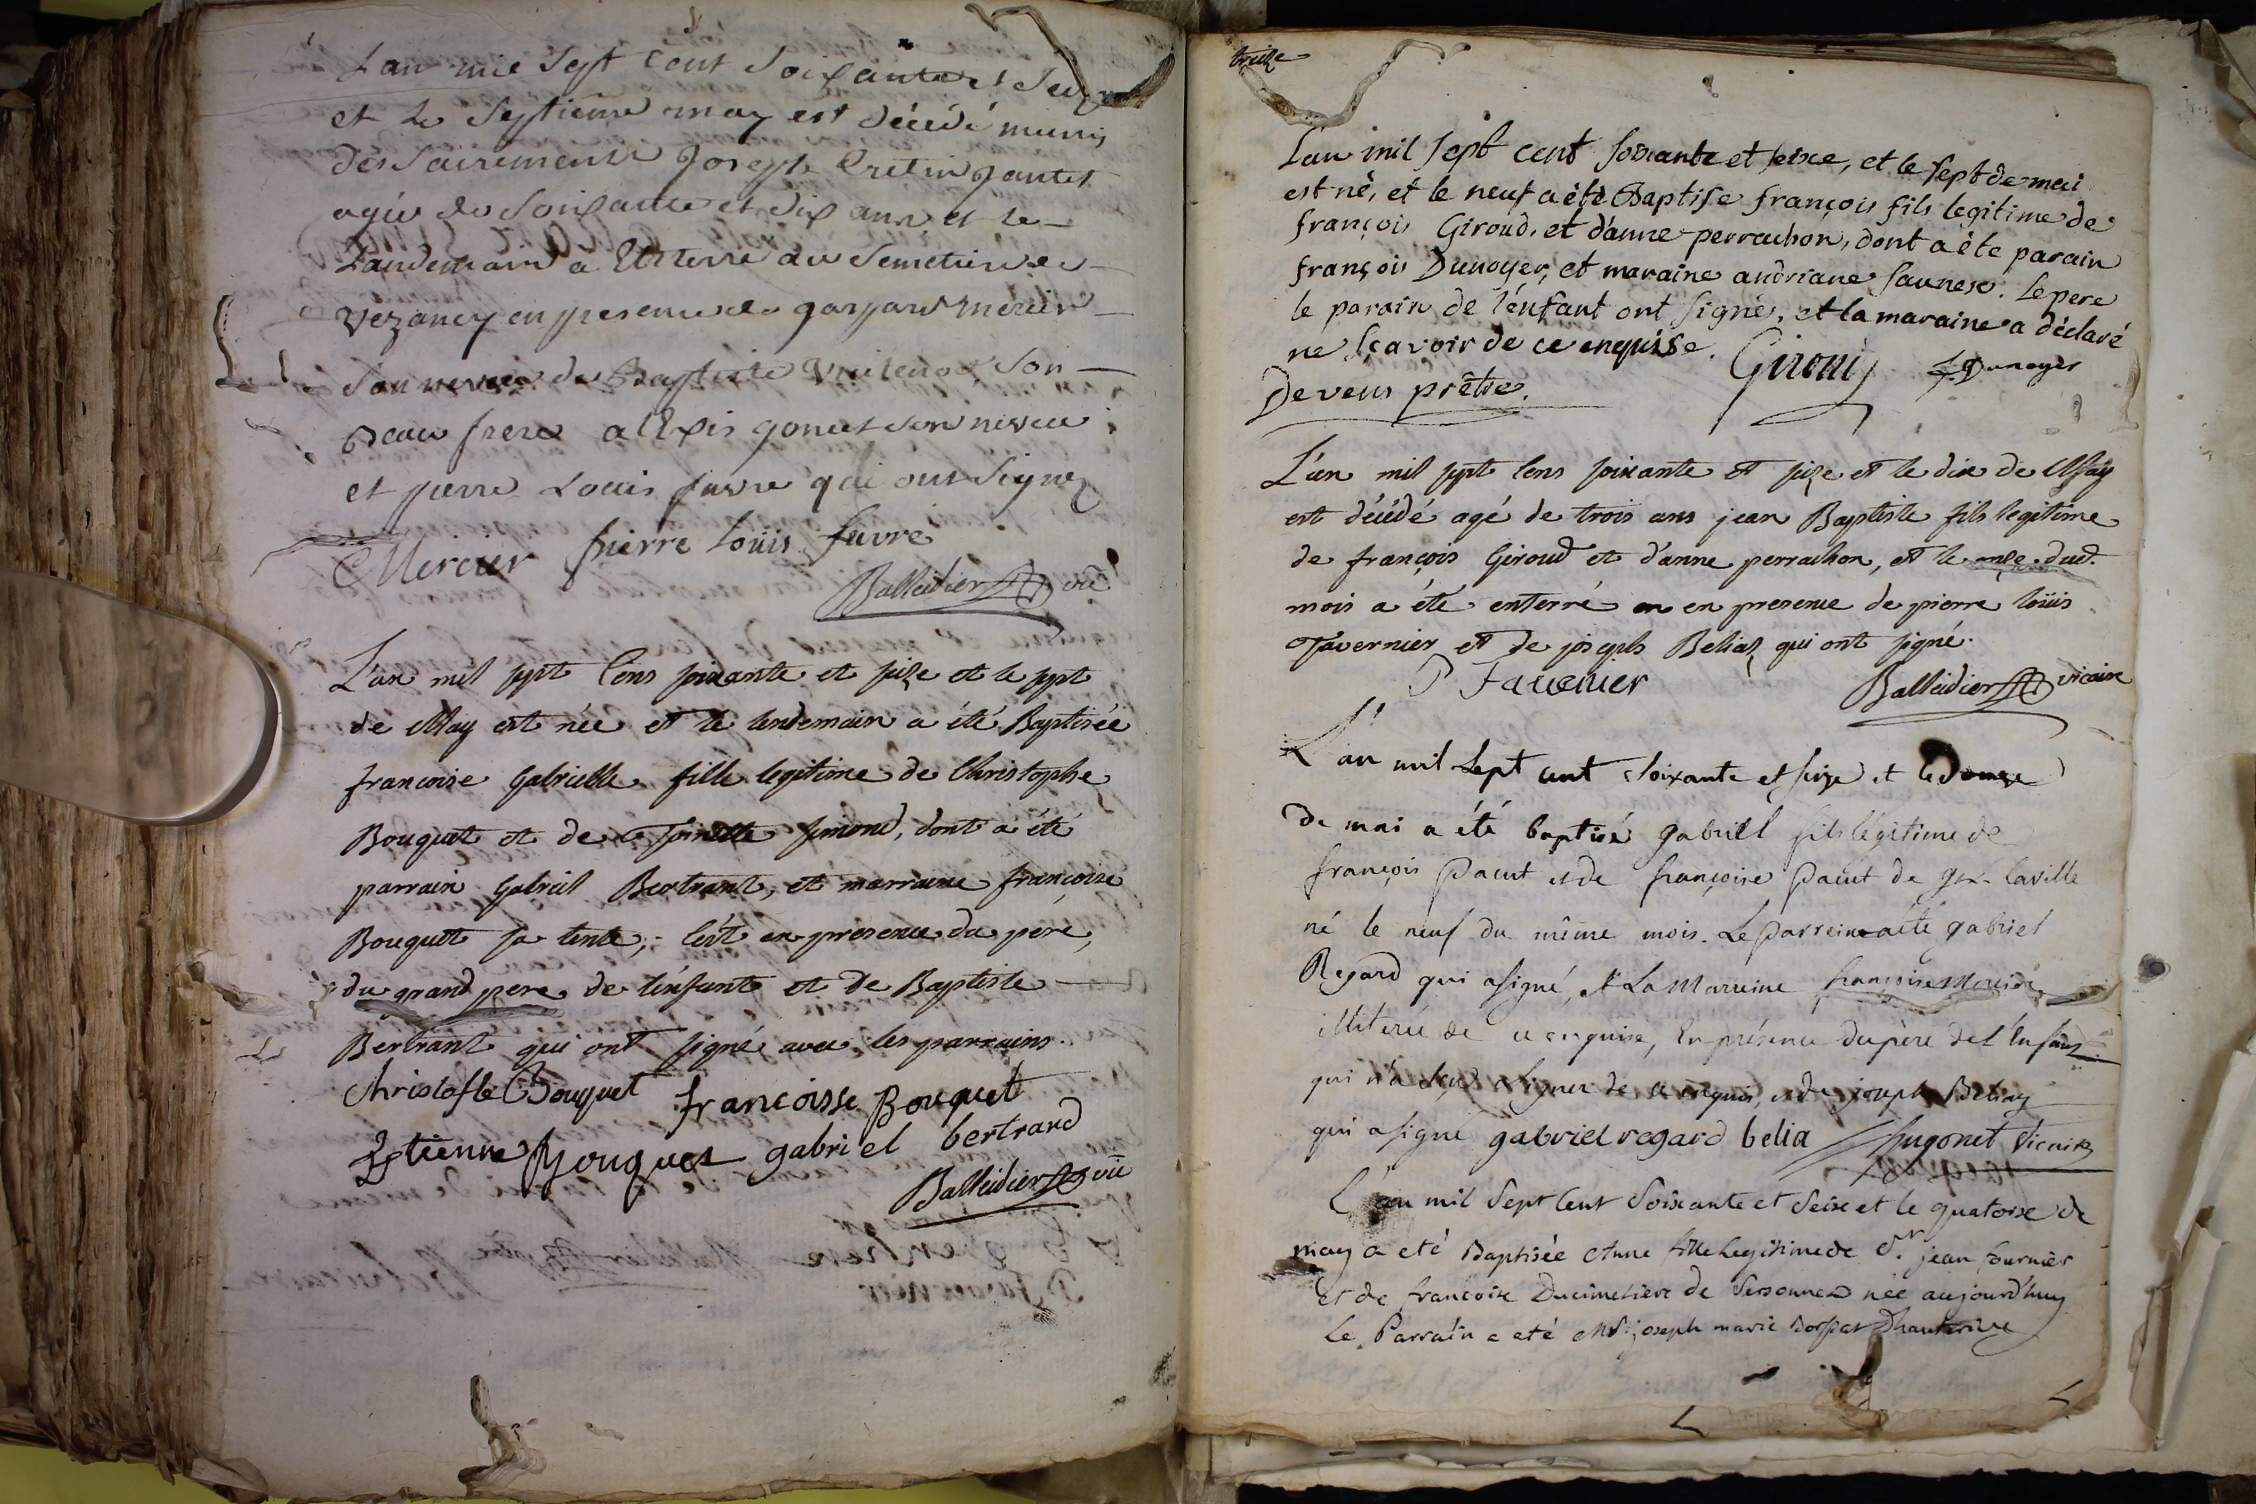 L'an mil sept cent soixante et seize
et le septieme may est décédé munis
des sairements Joseph Cretin Jantet
agée de soixante et dix ans et le
Landemain a Etterré au Semetiere de
Vezancy en presence de gaspard mercier
son neveu de Baptiste Vuilenot son
Beau frere allexis gonet son neveu
et pierre Louis favre qui ont Signez
Mercier pierre loüis favre
Balleidier vic
L'an mil sept Cens soixante et seize et le sept
de May est née et le lendemain a été Baptisée
francoise Gabrielle fille legitime de Christophe
Bouquet et de Toinette simond, dont a été
parrain Gabriel Bertrant, et marraine francoise
Bouquet sa tente, c'est en presence du pere,
du grand pere de l'enfant et de Baptiste
Bertrant qui ont signé avec les parrains.
Christofle Bouquet francoisse Bouquet
Etienne Bouquet gabriel bertrand
Balleidier vic
treize
L'an mil sept cent soixante et seize, et le sept de mai
est né, et le neuf a été Baptise françois fils legitime de
françois Giroud, et d'anne perrachon, dont a éte parain
françois Dunoyer, et maraine andriane saunex. Le pere
le parain de l'énfant ont signé, et la maraine a déclaré
ne sçavoir de ce enquise. Giroud f. Dunoyer
Deveus prêtre.
L'an mil sept Cens soixante et seize et le dix de May
est décédé agé de trois ans jean Baptiste fils legitime
de françois Giroud et d'anne perrachon, et le onze dud.
mois a été enterré en en presence de pierre loüis
Tavernier et de joseph Beliaz qui ont signé.
P Favenier Balleidier vicaire
L'an mil sept cent soixante et seize et le douze
de mai a été baptisé gabriel fils légitime de
françois Pacut et de françoise Pacut de gex-laville
né le neuf du même mois. Le Parrein a été gabriel
Regard qui a signé, et La Marreine françoise
illiterée de ce enquise, En présence du père de l'Enfant
qui n'a sçu signer de ce enquis, et de joseph Beliaz
qui a signé gabriel regard belia hugonet Vicaire
L'an mil Sept Cent Soixante et Seixe et le quatorze de
may a eté Baptisée Anne fille Legitime de Sr. jean fournier
et de francoise Ducimetiere de Sersonnex née aujourd'huy
Le Parrain a eté Mr. joseph marie Borssat D'hauterive